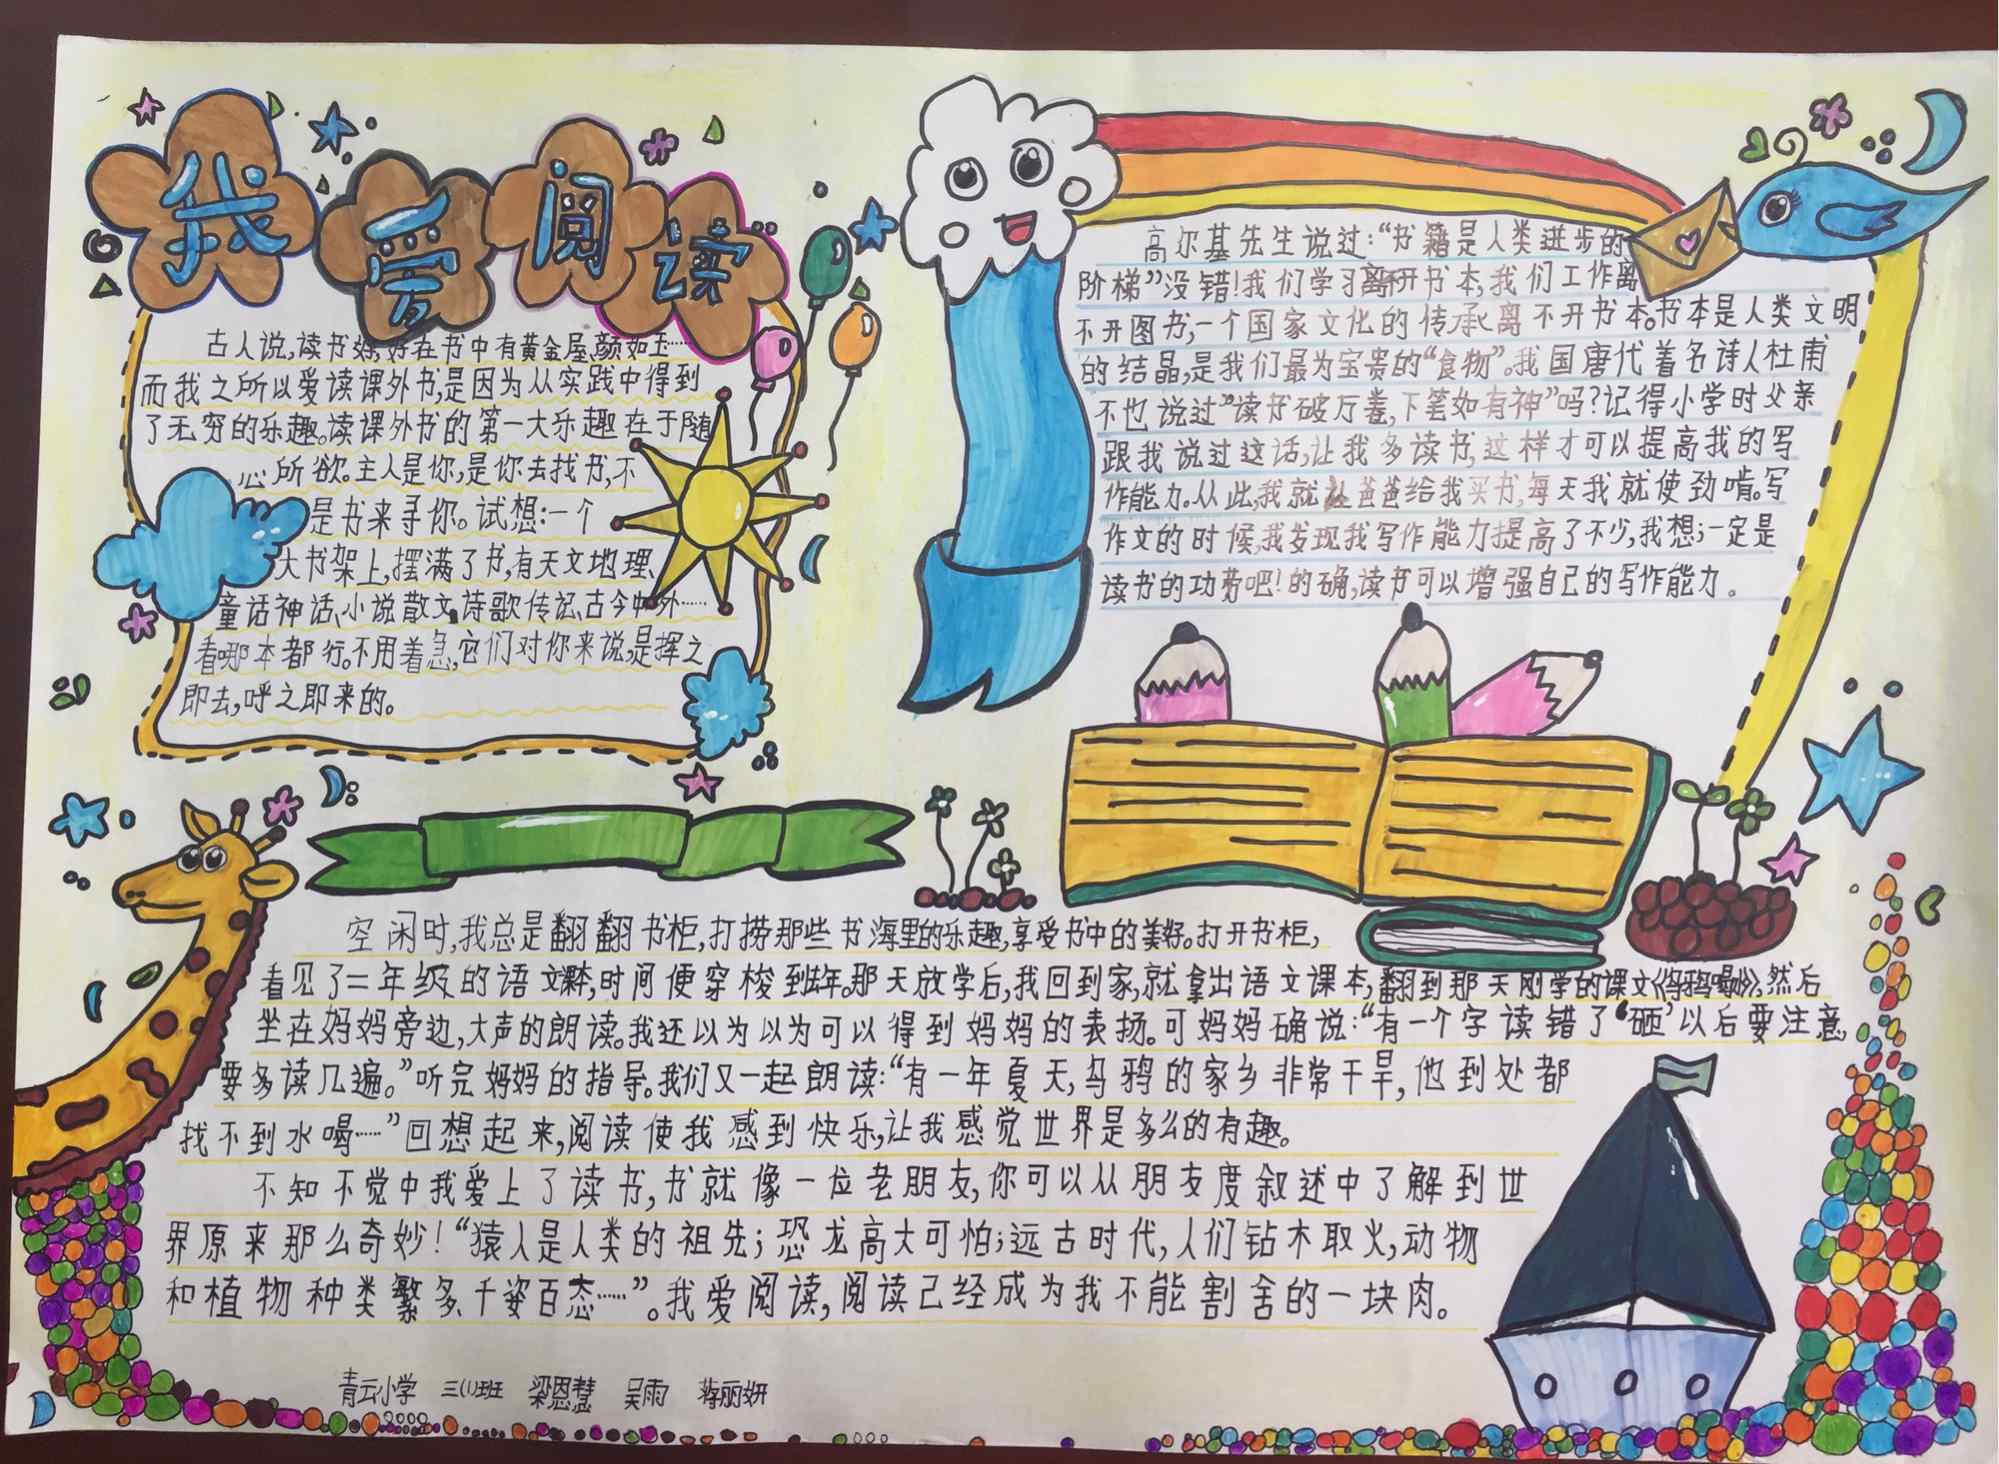 我爱阅读
古人说,读书好,好在书中有黄金屋、颜如玉……
而我之所以爱读课外书,是因为从实践中得到
了无穷的乐趣。读课外书的第一大乐趣在于随
心所欲。主人是你,是你去找书,不
是书来寻你。试想:一个
大书架上,摆满了书,有天文地理、
童话神话、小说散文、诗歌传记、古今中外……
看哪本都行。不用着急,它们对你来说,是挥之
即去,呼之即来的。
高尔基先生说过:“书籍是人类进步的
阶梯”没错!我们学习离不开书本,我们工作离
不开图书,一个国家文化的传承离不开书本。书本是人类文明
的结晶,是我们最为宝贵的“食物”。我国唐代著名诗人杜甫
不也说过”读书破万卷,下笔如有神”吗?记得小学时父亲
跟我说过这话,让我多读书,这样才可以提高我的写
作能力。从此,我就让爸爸给我买书,每天我就使劲啃。写
作文的时候,我发现我写作能力提高了不少,我想;一定是
读书的功劳吧!的确,读书可以增强自己的写作能力。
空闲时,我总是翻翻书柜,打捞那些书海里的乐趣,享受书中的美好。打开书柜,
看见了二年级的语文课本,时间便穿梭到去年。那天放学后,我回到家,就拿出语文课本,翻到那天刚学的课文《乌鸦喝水》,然后
坐在妈妈旁边,大声的朗读。我还以为以为可以得到妈妈的表扬。可妈妈确说:“有一个字读错了‘砸’以后要注意,
要多读几遍。”听完妈妈的指导。我们又一起朗读:“有一年夏天,乌鸦的家乡非常干旱,他到处都
找不到水喝……”回想起来,阅读使我感到快乐,让我感觉世界是多么的有趣。
不知不觉中我爱上了读书,书就像一位老朋友,你可以从朋友度叙述中了解到世
界原来那么奇妙!“猿人是人类的祖先;恐龙高大可怕;远古时代,人们钻木取火,动物
和植物种类繁多、千姿百态……”。我爱阅读,阅读已经成为我不能割舍的一块肉。
青云小学 三(1)班 梁恩慧 吴雨 蒋丽妍